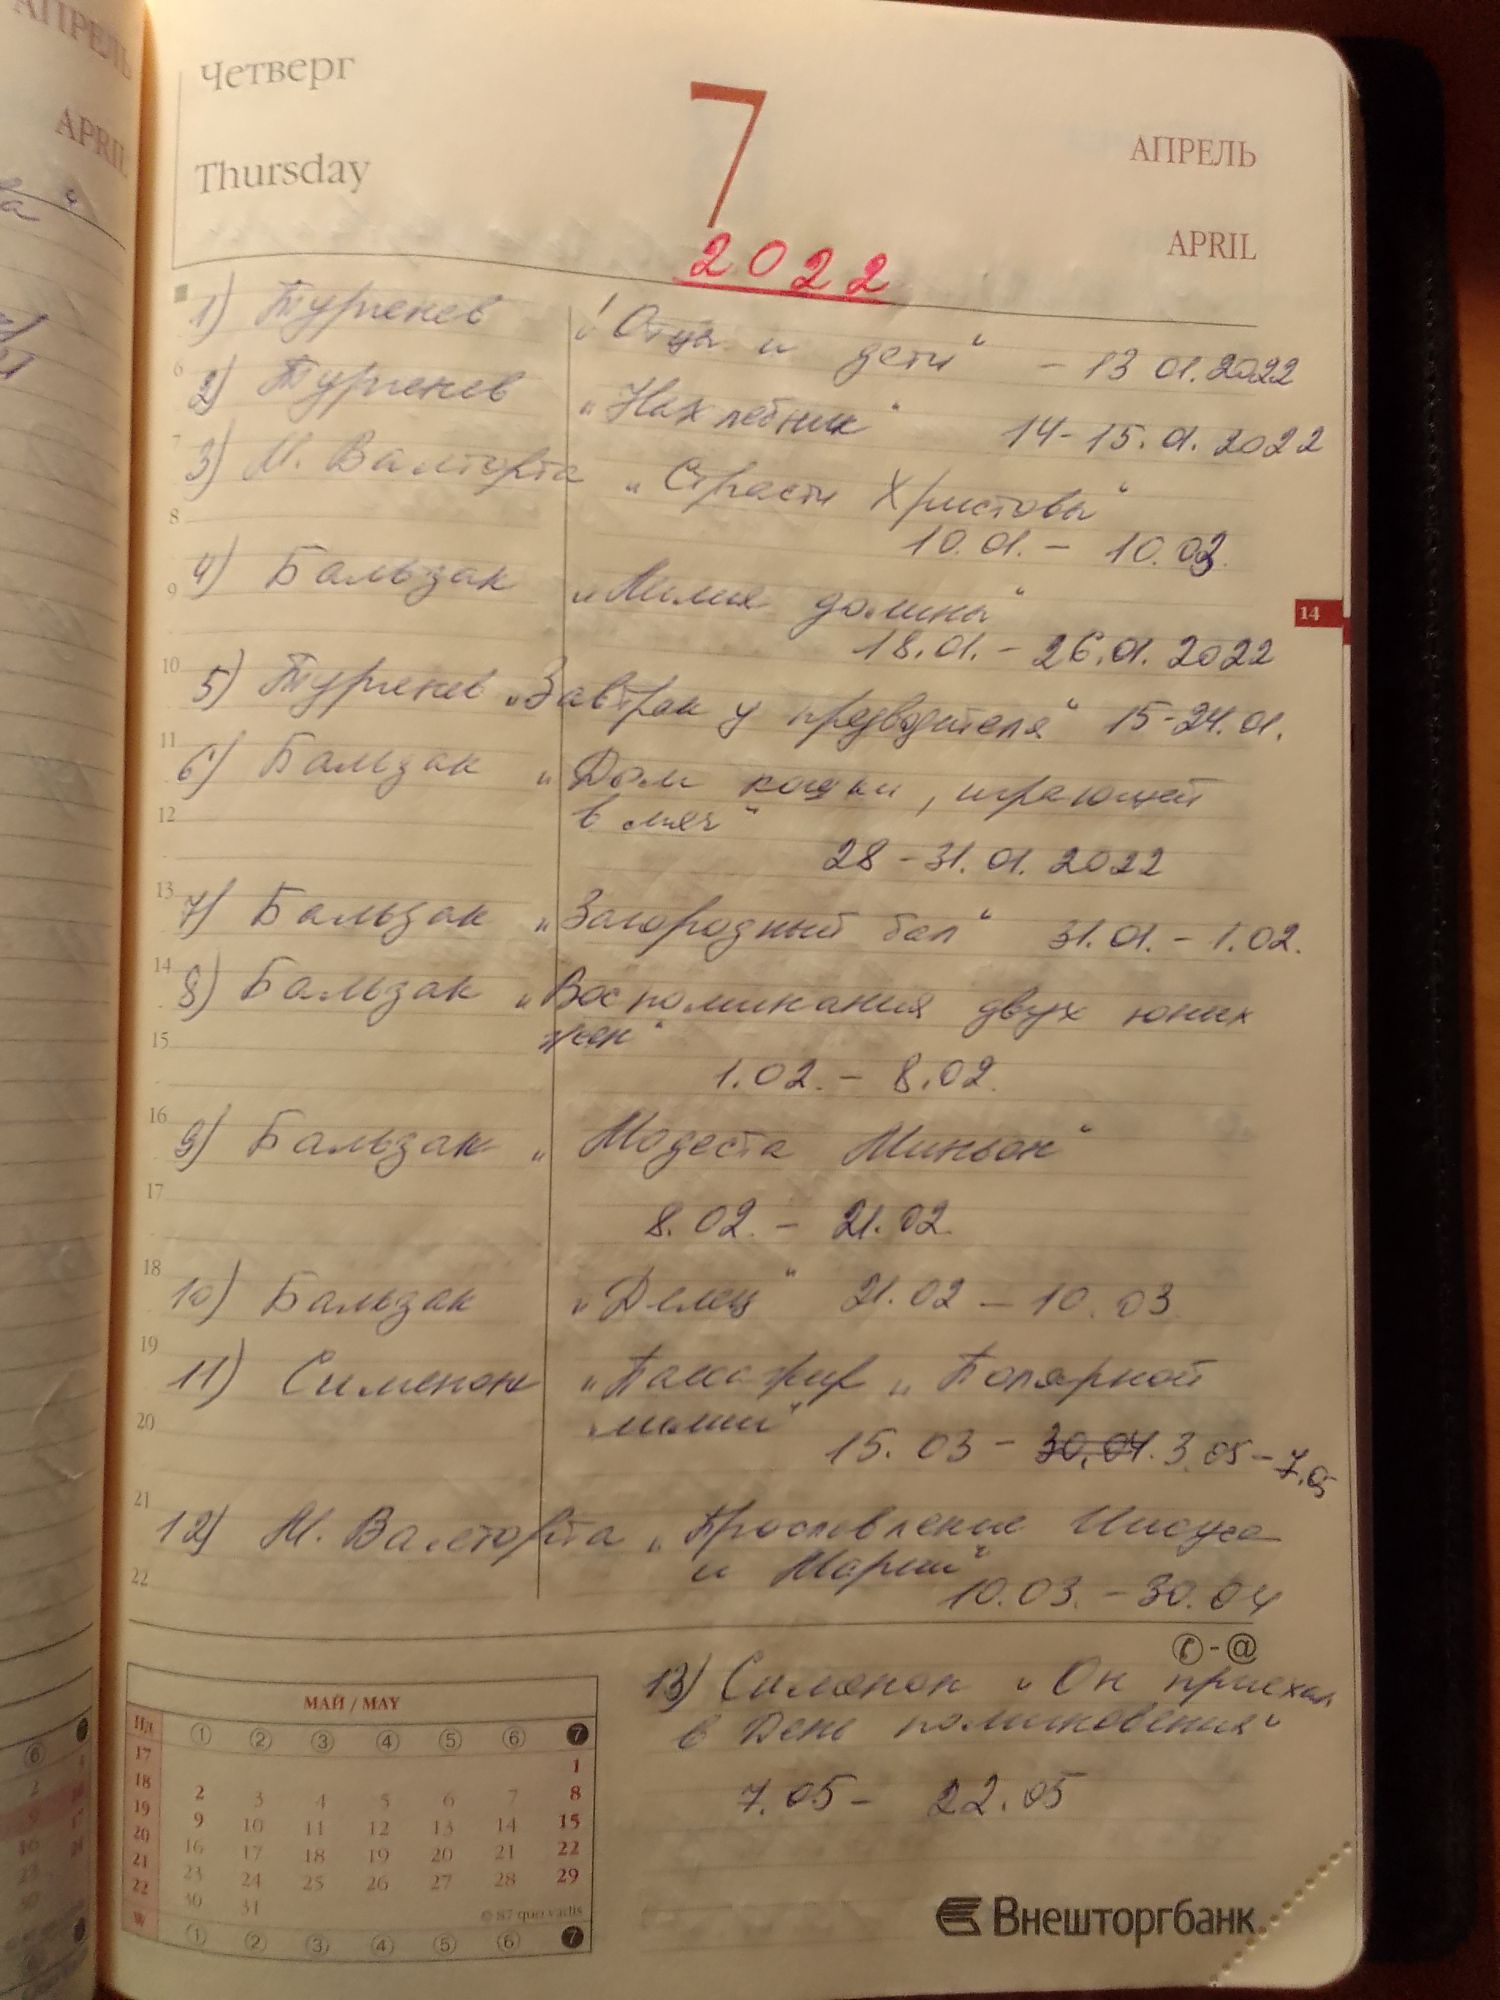 АПРЕЛЬ
APRIL
Четверг
Thursday
7
АПРЕЛЬ
APRIL
2022
1) Тургенев „Отцы и дети“ – 13 01.2022
6
2) Тургенев „Нахлебник“ 14-15.01.2022
7
3) М. Валторта „Страсти Христовы“
8
10.01. – 10.03.
4) Бальзак „Лилия долины“
9
18.01. – 26.01.2022
14
10
5) Тургенев „Завтрак у предводителя“ 15-24.01.
11
6) Бальзак „Дом кошки, играющей
12
в мяч“
28-31.01.2022
13
7) Бальзак „Загородный бал“ 31.01. – 1.02.
14
8) Бальзак „Воспоминания двух юных
15
жен“
1.02. – 8.02.
16
9) Бальзак „Модеста Миньон“
17
8.02. – 21.02.
18
10) Бальзак „Делец“ 21.02 – 10.03
19
11) Сименон „Пассажир „Полярной
20
лилии“
15.03 – 30.04. 3.05-7.05
21
12) М. Валторта „Прославление Иисуса
22
и Марии“
10.03. – 30.04
@
13) Сименон „Он приехал
в День поминовения“
7.05 – 22.05
МАЙ / MAY
Нд 1 2 3 4 5 6 7
17 1
18 2 3 4 5 6 7 8
19 9 10 11 12 13 14 15
20 16 17 18 19 20 21 22
21 23 24 25 26 27 28 29
22 30 31
© 87 quo vadis
W 1 2 3 4 5 6 7
Внешторгбанк